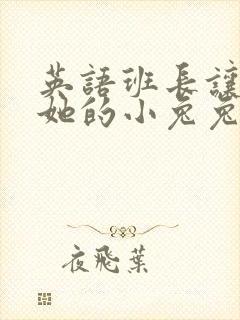 英語班長讓
她的小兔兔
夜飛葉